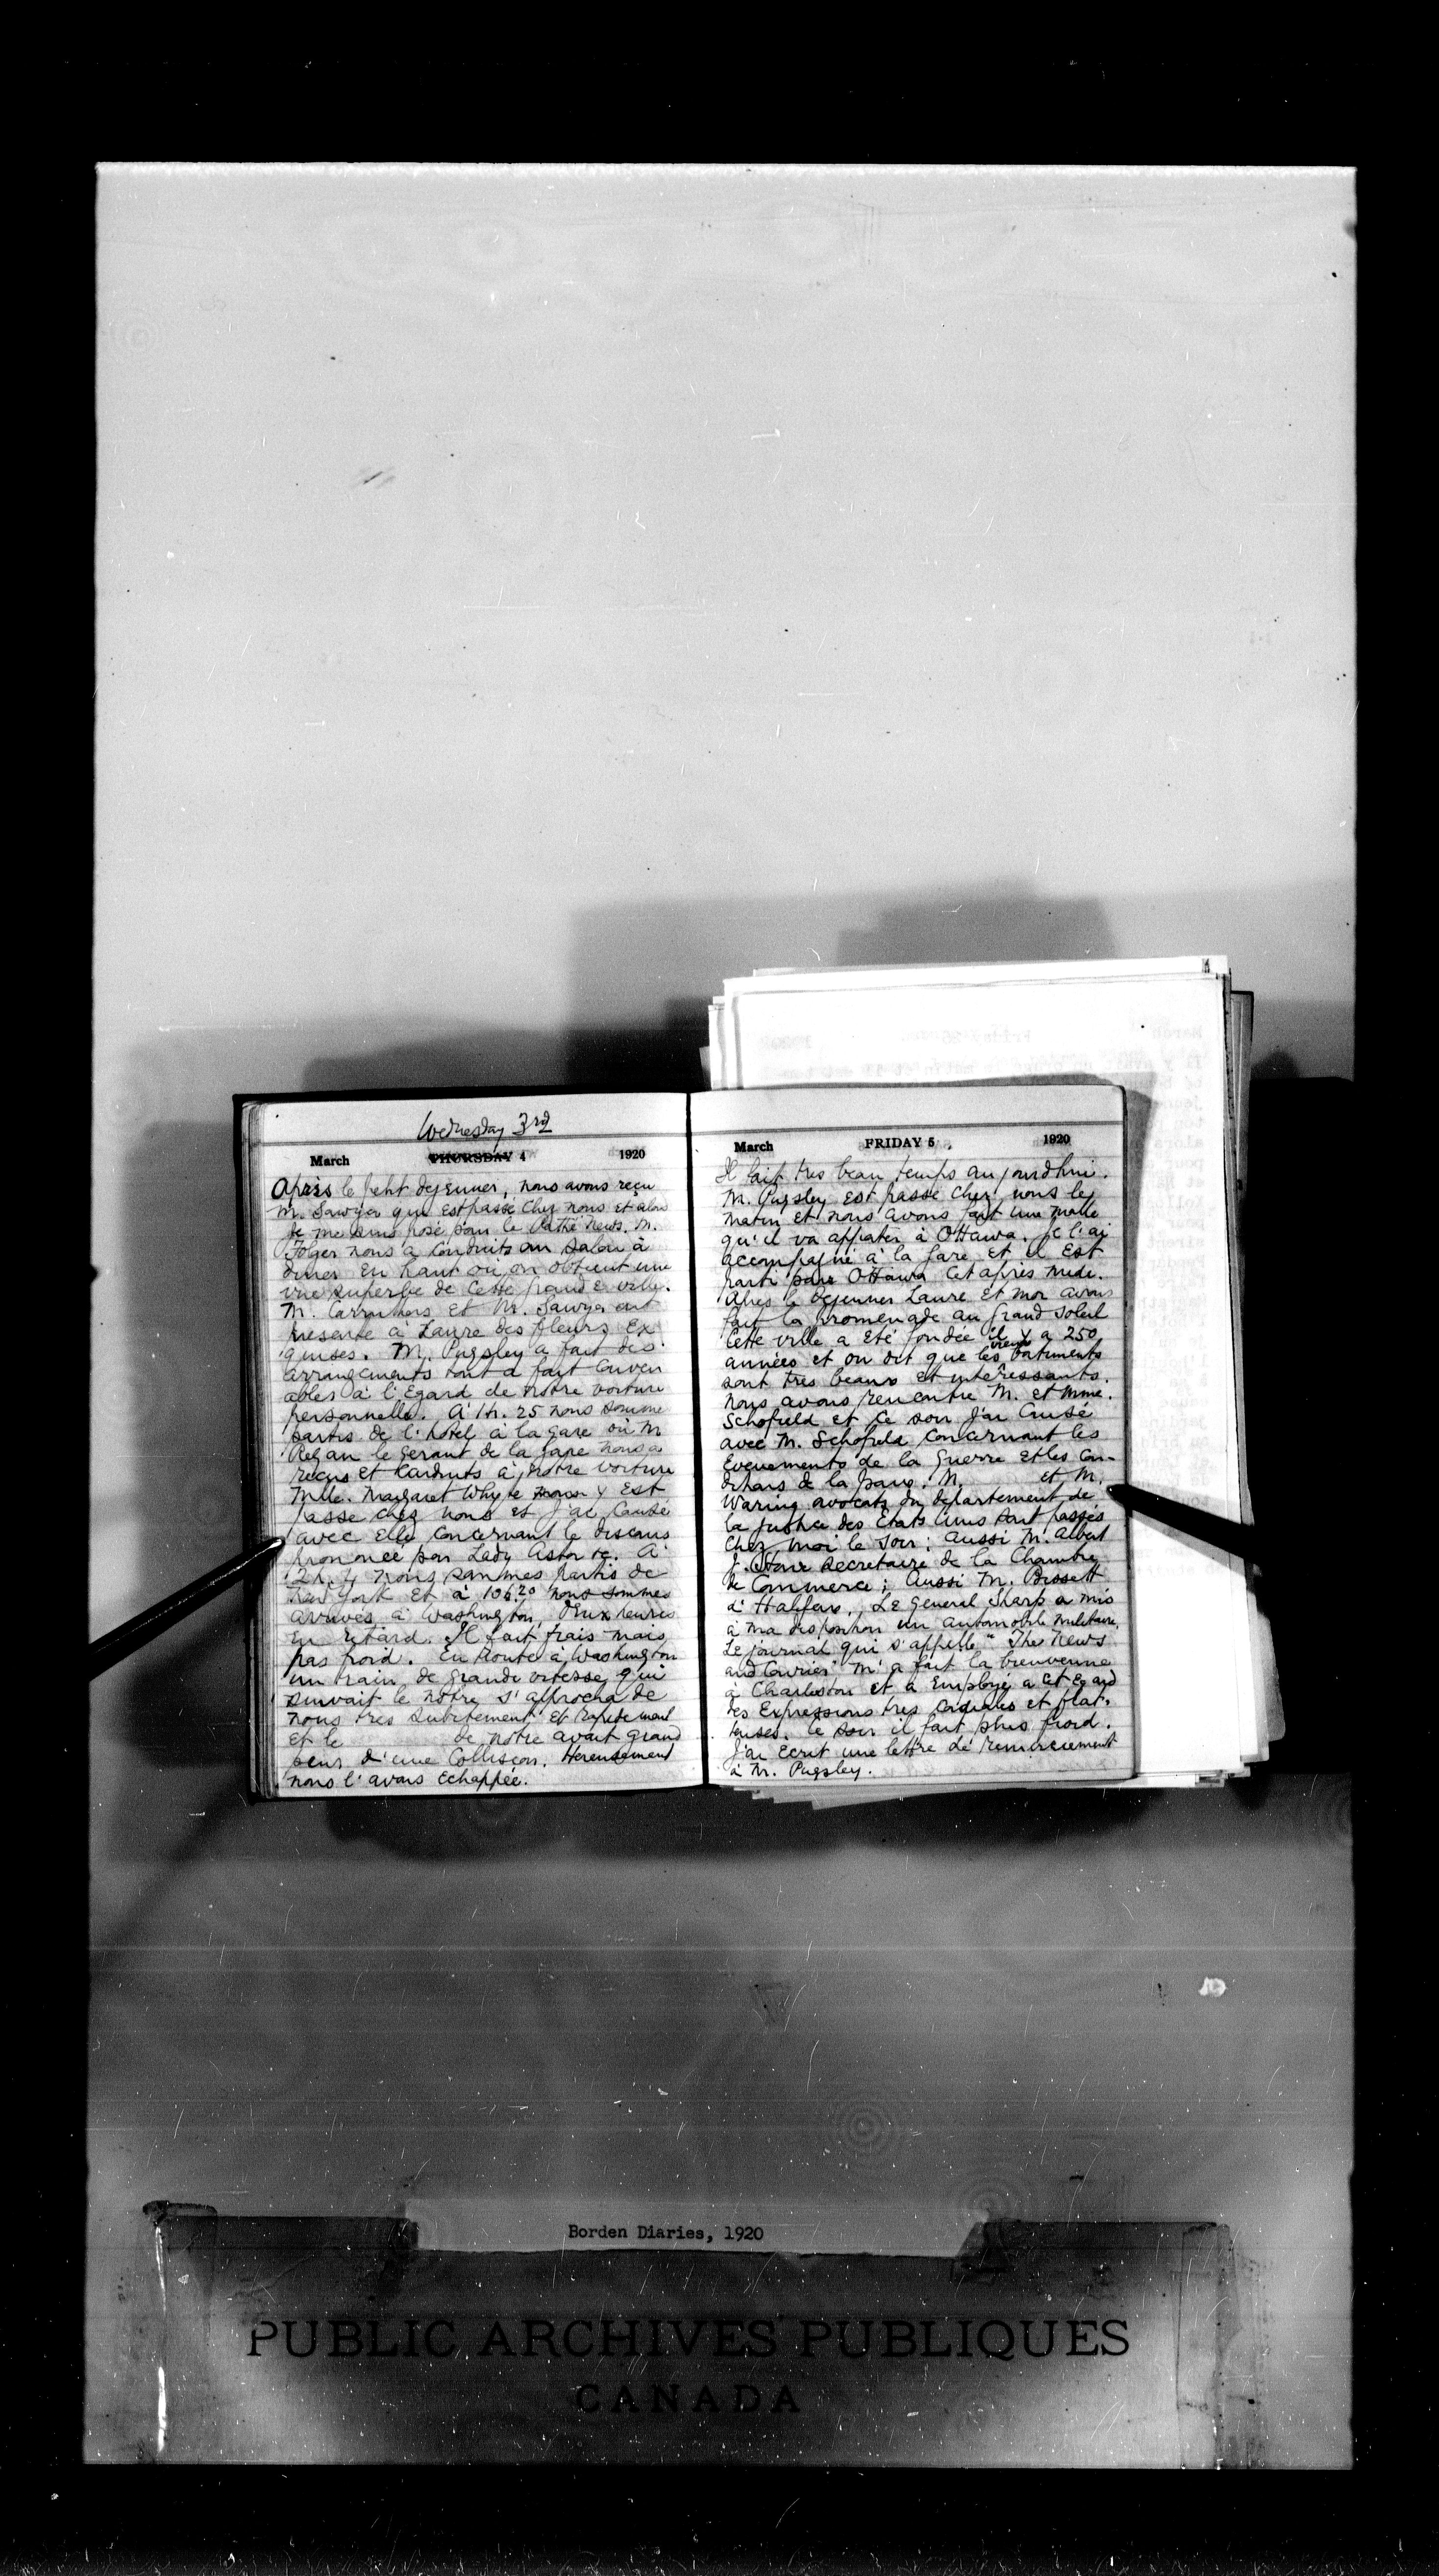 Wednesday 3rd
March THURSDAY 4 1920
Après le petit dejeuner, nous avons reçu
M. Sawyer qui est passé chez nous et alors
je me suis posé pour le Pathé News. M.
Foger nous a conduits au salon à
diner en haut où on obtient une
vue superbe de cette grande ville.
M. Carruthers et M. Sawyer ont
presenté à Laure des fleurs ex
quises. M. Pugsley a fait des
arrangements tout a fait conven
ables à l'égard de notre voiture
personnelle. A 1h. 25 nous somme
partis de l'hotel à la gare où M
Regan le gerant de la gare nous a
reçus et conduits à notre voiture
Mlle. Margaret Whyte y est
passe chez nous et j'ai causé
avec elle concernant le discours
prononcé par Lady Astor &c. A
2h. 4 nous sommes partis de
New York et à 10h.20 nous sommes
arrivés à Washington, deux heures
en retard. Il fait frais mais
pas froid. En route à Washington
un train de grande vitesse qui
suivait le nôtre s'approcha de
nous très subitement et rapidement
et le de notre avait grand
peur d'une collision. Hereusement
nous l'avons echappée.
March FRIDAY 5 1920
Il fait tres beau temps aujourdhui.
M. Pugsley est passé chez nous le
matin et nous avons fait une malle
qu'il va apporter à Ottawa. Je l'ai
accompagné à la gare et il est
parti pour Ottawa cet après midi.
Apres le dejeuner Laure et moi avons
fait la promenade au grand soleil
Cette ville a été fondée il y a 250
années et on dit que les vieux batiments
sont tres beaux et intéressants.
Nous avons rencontre M. et Mme.
Schofield et ce soir j'ai causé
avec M. Schofield concernant les
evenements de la guerre et les con-
ditions de la paix. M. et M.
Waring avocats du departement de
la justice des Etats Unis sont passés
chez moi le soir; aussi M. Albert
J. Stone secretaire de la Chambre
de Commerce; aussi M. Bissett
d'Halifax. Le General Sharp a mis
à ma disposition un automobile militaire.
Le journal qui s'appelle "The News
and Courier" m'a fait la bienvenue
à Charleston et a employé a cet egard
des expressions tres cordiales et flat-
teuses. Ce soir il fait plus froid.
J'ai ecrit une lettre de remerciement
à M. Pugsley.
Borden Diaries, 1920
PUBLIC ARCHIVES PUBLIQUES
CANADA